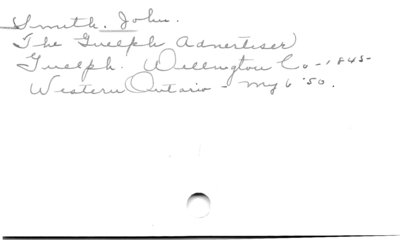 Smith, John.
The Guelph Advertiser
Guelph. Wellington Co - 1845-
Western Ontario - My 6 '50.